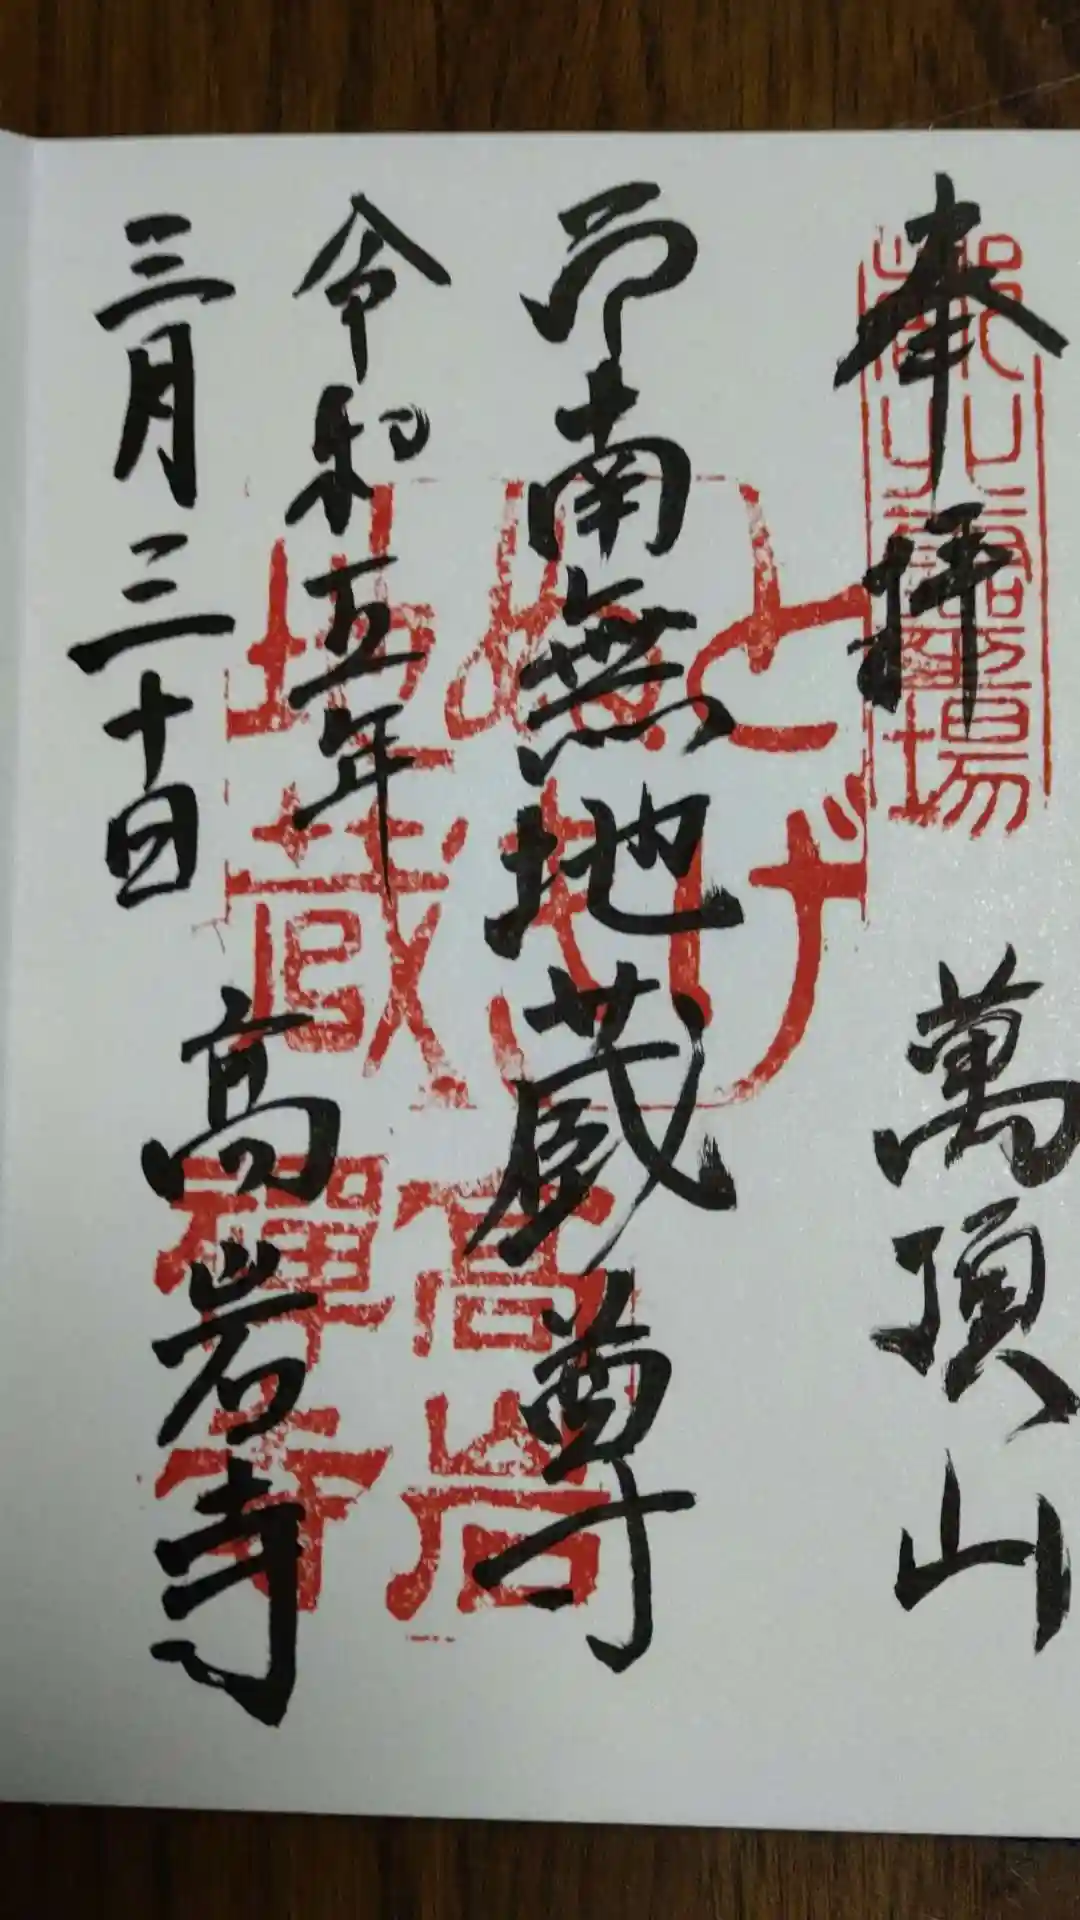 奉拝 萬頂山
南無地蔵尊
令和五年
三月三十日
高岩寺
とげ
ぬけ
地蔵
高岩
禅寺